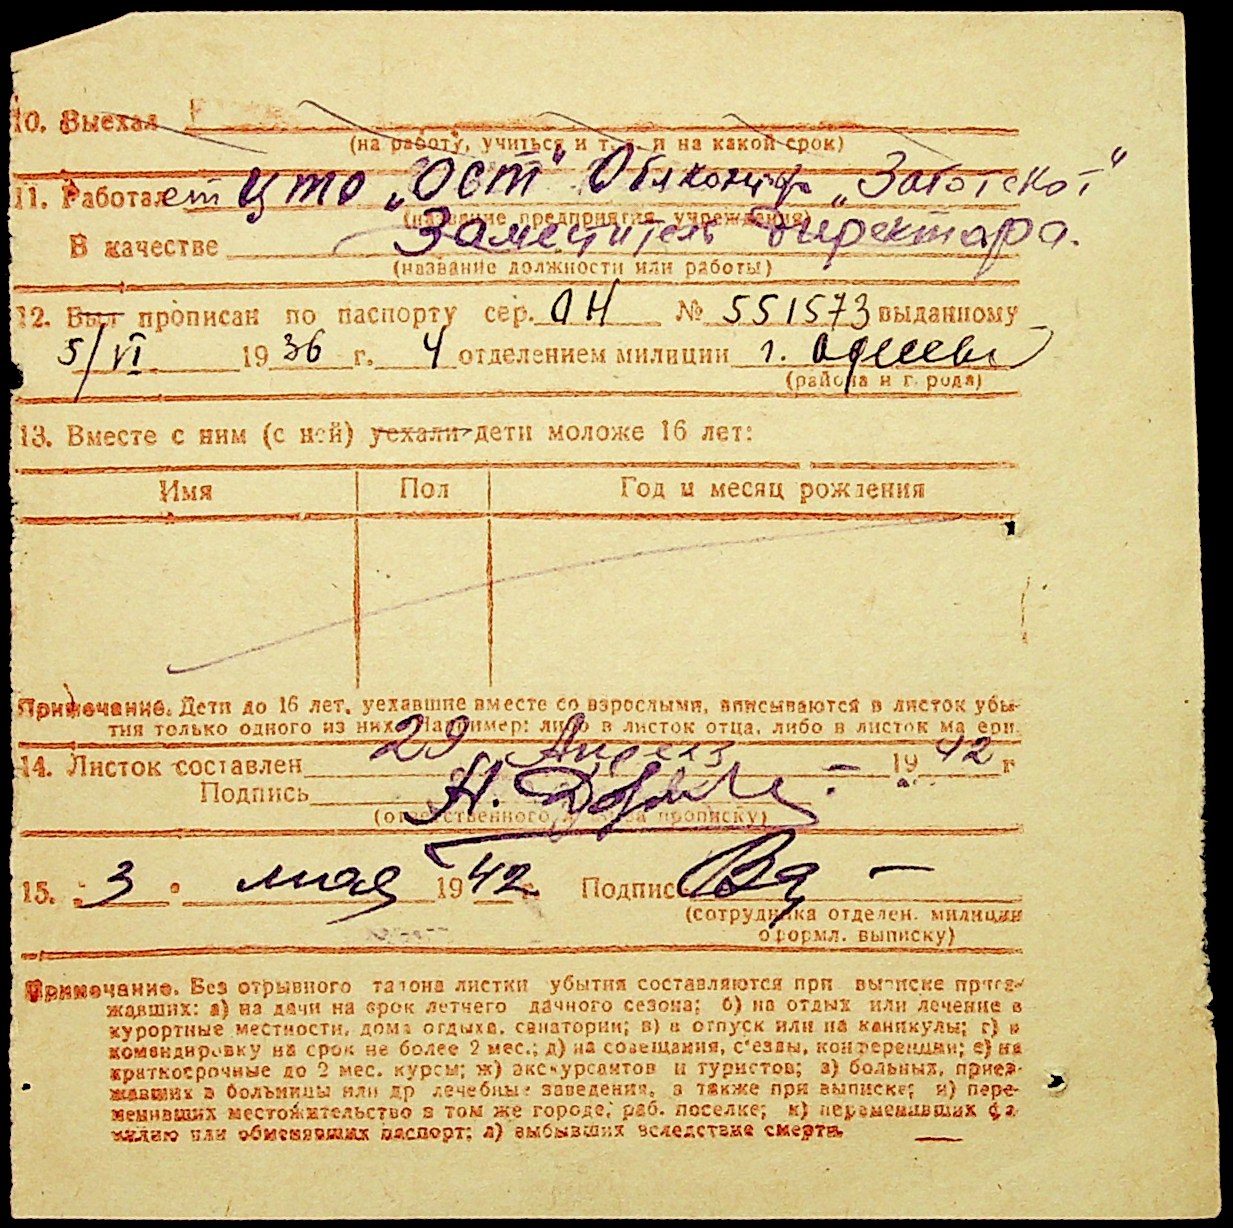 10. Выехал
(на работу, учиться и т. д. и на какой срок)
11. Работает ЦТО „ОСТ" Облконтора „Заготскот"
(название предприятия, учреждения)
В качестве Заместитель директара.
(название должности или работы)
12. Был прописан по паспорту сер. ОН № 551573 выданному
5/VI 1936 г. 4 отделением милиции г. Одессы
(района и города)
13. Вместе с ним (с ней) уехали дети моложе 16 лет:
Имя Пол Год и месяц рождения
Примечание. Дети до 16 лет, уехавшие вместе со взрослыми, вписываются в листок убы-
тия только одного из них. Например: либо в листок отца, либо в листок матери.
14. Листок составлен 29 Апреля 1942 г
Подпись Н.
(ответственного лица за прописку)
15. „3" мая 1942 г. Подпись
(сотрудника отделен. милиции
оформл. выписку)
Примечание. Без отрывного талона листки убытия составляются при выписке приез-
жавших: а) на дачи на срок летнего дачного сезона; б) на отдых или лечение в
курортные местности, дома отдыха, санатории; в) в отпуск или на каникулы; г) в
командировку на срок не более 2 мес.; д) на совещания, с'езды, конференции; е) на
краткосрочные до 2 мес. курсы; ж) экскурсантов и туристов; з) больных, приез-
жавших в больницы или др лечебные заведения, а также при выписке; и) пере-
менивших местожительство в том же городе, раб. поселке; к) переменивших фа-
милию или обменявших паспорт; л) выбывших вследствие смерти.